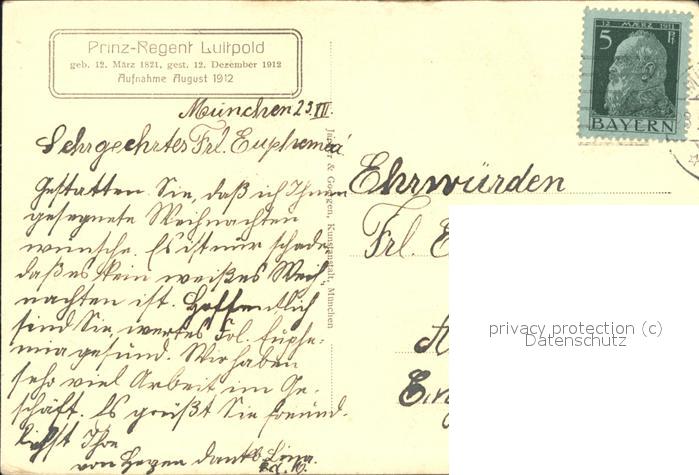 Prinz-Regent Luitpold
geb. 12. März 1821, gest. 12. Dezember 1912
Aufnahme August 1912
12 MÄRZ 1911
5 Pf
BAYERN
München 23. XII.
Sehrgeehrtes Frl. Euphemia
Gestatten Sie, daß ich Ihnen
gesegnete Weihnachten
wünsche. Es ist nur schade
daß es kein weißes Weih-
nachten ist. Hoffentlich
sind Sie, wertes Frl. Euphe-
mia gesund. Wir haben
sehr viel Arbeit im Ge-
schäft. Es grüßt Sie freund-
lichst Ihre
von Herzen dankb. Lina
Jaeger & Goergen, Kunstanstalt, München
Ehrwürden
Frl. E
A
privacy protection (c)
Datenschutz